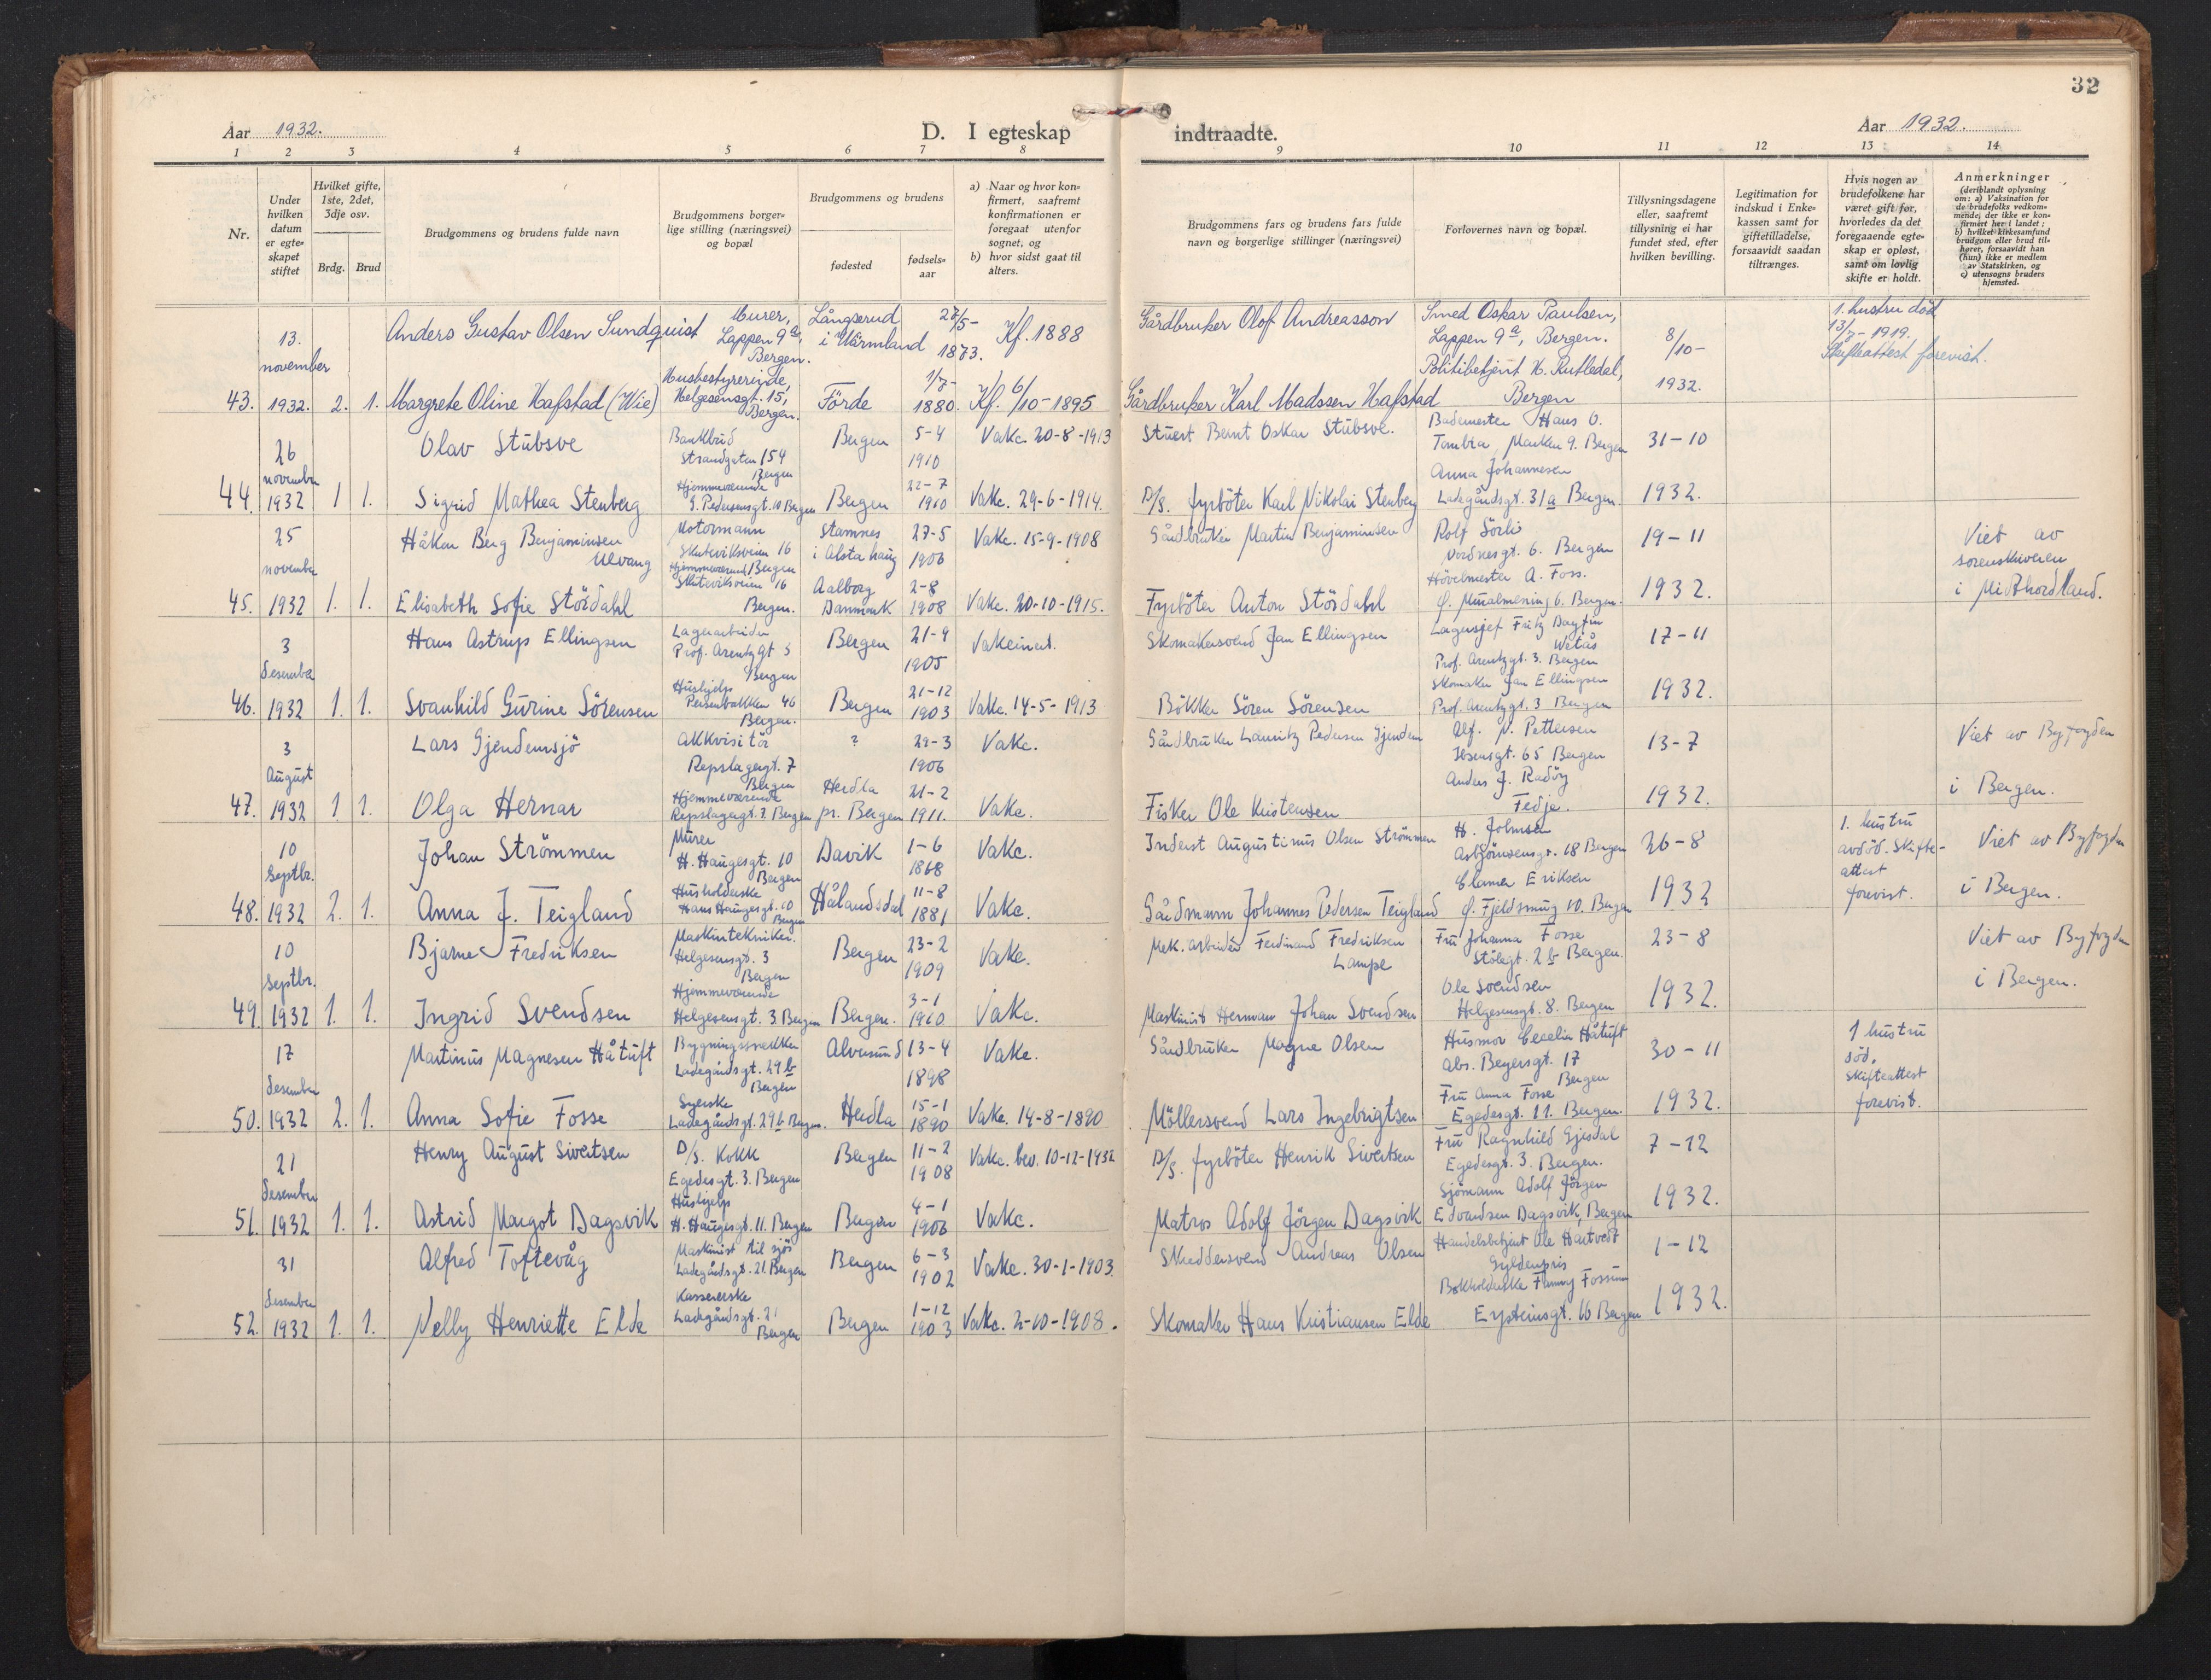 32
Aar 1932.
D. I egteskap indtraadte.
Aar 1932.
1 2 3 4 5 6 7 8 9 10 11 12 13 14
Nr.
Under hvilken datum er egte-skapet stiftet
Hvilket gifte, 1ste, 2det, 3dje osv.
Brdg. Brud
Brudgommens og brudens fulde navn
Brudgommens borger-lige stilling (næringsvei) og bopæl
Brudgommens og brudens
fødested
fødsels-aar
a) Naar og hvor kon-firmert, saafremt konfirmationen er foregaat utenfor sognet, og
b) hvor sidst gaat til alters.
Brudgommens fars og brudens fars fulde navn og borgerlige stillinger (næringsvei)
Forlovernes navn og bopæl.
Tillysningsdagene eller, saafremt tillysning ei har fundet sted, efter hvilken bevilling.
Legitimation for indskud i Enke-kassen samt for giftetilladelse, forsaavidt saadan tiltrænges.
Hvis nogen av brudefolkene har været gift før, hvorledes da det foregaaende egte-skap er opløst, samt om lovlig skifte er holdt.
Anmerkninger
(deriblandt oplysning om: a) Vaksination for de brudefolks vedkom-mende, der ikke er kon-firmert her i landet; b) hvilket kirkesamfund brudgom eller brud til-hører, forsaavidt han (hun) ikke er medlem av Statskirken, og c) utensogns bruders hjemsted.
43. 13. november 1932. 2. 1.
Anders Gustav Olsen Sundquist
Murer, Lappen 9a, Bergen.
Långserud i Wärmland
27/5- 1873.
Kf. 1888
Gårdbruker Olof Andreasson
Smed Oskar Paulsen, Lappen 9a, Bergen.
8/10- 1932.
1. hustru död 13/7-1919. Skifteattest forevist.
Margrete Oline Hafstad (Wie)
Husbestyrerinde, Helgesensgt. 15, Bergen.
Förde
1/7- 1880.
Kf. 6/10-1895
Gårdbruker Karl Madssen Hafstad
Politibetjent H. Rutledal, Bergen
44. 26 november 1932 1 1.
Olav Stubsve
Bankbud Strandgaten 154 Bergen
Bergen
5-4 1910
Vakc. 20-8-1913
Stuert Bernt Oskar Stubsve.
Bademester Hans O. Tombra, Marken 9. Bergen
31-10 1932.
Sigrid Mathea Stenberg
Hjemmeværende G. Pedersensgt. 10 Bergen
Bergen
22-7 1910
Vakc. 29-6-1914.
D/S. fyrböter Karl Nikolai Stenberg
Anna Johannesen Ladegårdsgt. 31a Bergen
45. 25 november 1932 1. 1.
Håkon Berg Benjaminsen Ulvang
Motormann Skuteviksveien 16 Bergen
Stamnes i Alstahaug
27-5 1906
Vakc. 15-9-1908
Gårdbruker Martin Benjaminsen
Rolf Sörli Nordnesgt. 6. Bergen
19-11 1932.
Viet av sorenskriveren i Midthordland.
Elisabeth Sofie Stördahl
Hjemmeværende Skuteviksveien 16 Bergen.
Aalborg Danmark
2-8 1908
Vakc. 20-10-1915.
Fyrböter Anton Stördahl
Hövelmester A. Foss. Ö. Muralmening 6. Bergen.
46. 3 desember 1932 1. 1.
Hans Astrup Ellingsen
Lagerarbeider Prof. Arentzgt 3 Bergen
Bergen
21-9 1905
Vakcinert.
Skomakersvend Jan Ellingsen
Lagersjef Fritz Dagfin Wetås Prof. Arentzgt. 3. Bergen
17-11 1932.
Svanhild Gurine Sörensen
Hushjelp Persenbakken 46 Bergen.
Bergen
21-12 1903
Vakc. 14-5-1913
Bökker Sören Sörensen
Skomaker Jan Ellingsen Prof. Arentzgt. 3 Bergen
47. 3 August 1932 1 1.
Lars Gjendemsjö
Akkvisitör Repslagergt. 7 Bergen
?
29-3 1906
Vakc.
Gårdbruker Lauritz Pedersen Gjendem
Alf. N. Pettersen Ibsensgt. 65 Bergen
13-7 1932.
Viet av Byfogden i Bergen.
Olga Hernar
Hjemmeværende Repslagergt. 7. Bergen
Herdla pr. Bergen
21-2 1911.
Vakc.
Fisker Ole Kristensen
Anders J. Radöy Fedje.
48. 10 Septbr. 1932 2. 1.
Johan Strömmen
Murer H. Haugesgt. 10 Bergen
Davik
1-6 1868
Vakc.
Inderst Augustinus Olsen Strömmen
H. Johnsen Asbjörnsensgt. 18 Bergen
26-8 1932
1. hustru avdöd. Skifte-attest forevist.
Viet av Byfogden i Bergen.
Anna J. Teigland
Husholderske Hans Haugesgt. 10 Bergen
Hålandsdal
11-8 1881
Vakc.
Gårdmann Johannes Pedersen Teigland
Clamer Eriksen Ö. Fjeldsmug 10. Bergen
49. 10 Septbr. 1932 1. 1.
Bjarne Fredriksen
Maskintekniker. Helgesensgt. 3 Bergen
Bergen
23-2 1909
Vakc.
Mek. arbeider Ferdinand Fredriksen Lampe
Fru Johanna Fosse Stölegt. 2b Bergen.
23-8 1932.
Viet av Byfogden i Bergen.
Ingrid Svendsen
Hjemmeværende Helgesensgt. 3 Bergen
Bergen.
3-1 1910
Vakc.
Maskinist Herman Johan Svendsen
Ole Svendsen Helgesensgt. 8. Bergen
50. 17 desember 1932 2. 1.
Martinus Magnesen Håtuft
Bygningssnekker Ladegårdsgt. 29b Bergen
Alversund
13-4 1898
Vakc.
Gårdbruker Magne Olsen
Husmor Cecelia Håtuft Abs. Beyersgt. 17 Bergen
30-11 1932.
1 hustru död. Skifteattest forevist.
Anna Sofie Fosse
Syerske Ladegårdsgt. 29b Bergen.
Herdla
15-1 1890
Vakc. 14-8-1890
Möllersvend Lars Ingebrigtsen
Fru Anna Fosse Egedesgt. 11. Bergen.
51. 21 desember 1932 1. 1.
Henry August Sivertsen
D/S. Kokk Egedesgt. 3. Bergen
Bergen
11-2 1908
Vakc. bev. 10-12-1932
D/S. fyrböter Henrik Sivertsen
Fru Ragnhild Gjesdal Egedesgt. 3. Bergen.
7-12 1932.
Astrid Margot Dagsvik
Hushjelp H. Haugesgt. 11. Bergen
Bergen
4-1 1906
Vakc.
Matros Adolf Jörgen Dagsvik
Sjömann Adolf Jörgen Edvardsen Dagsvik, Bergen
52. 31 desember 1932 1. 1.
Alfred Toftevåg
Maskinist til sjös Ladegårdsgt. 21. Bergen
Bergen
6-3 1902
Vakc. 30-1-1903.
Skreddersvend Andreas Olsen
Handelsbetjent Ole Hartvedt Gyldenpris
1-12 1932.
Nelly Henriette Elde
Kassererske Ladegårdsgt. 21 Bergen
Bergen
1-12 1903
Vakc. 2-10-1908.
Skomaker Hans Kristiansen Elde
Bokholderske Fanny Fossum Eysteinsgt. 16 Bergen